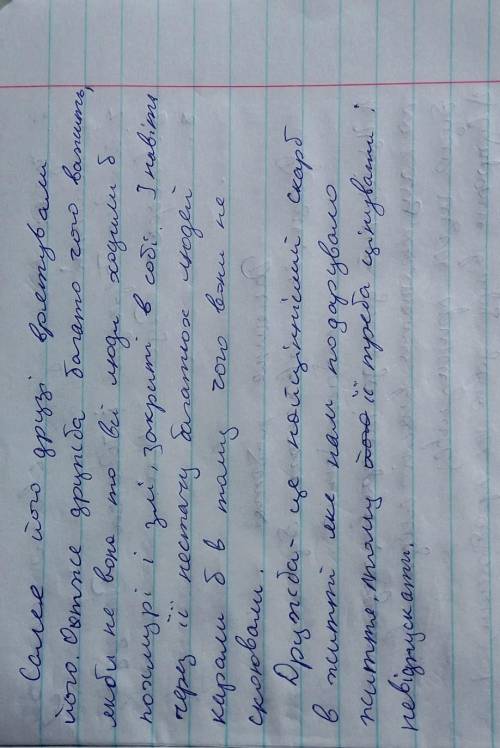 Саме його друзі врятували
його. Отже дружба багато чого важить,
якби не вона то всі люди ходили б
похмурі і злі, закриті в собі. І навіть
через її нестачу багатьох людей
карали б в тому чого вони не
скоювали.
Дружба - це найцінніший скарб
в житті яке нам подарувало
життя, тому його її треба цінувати і
невідпускати.